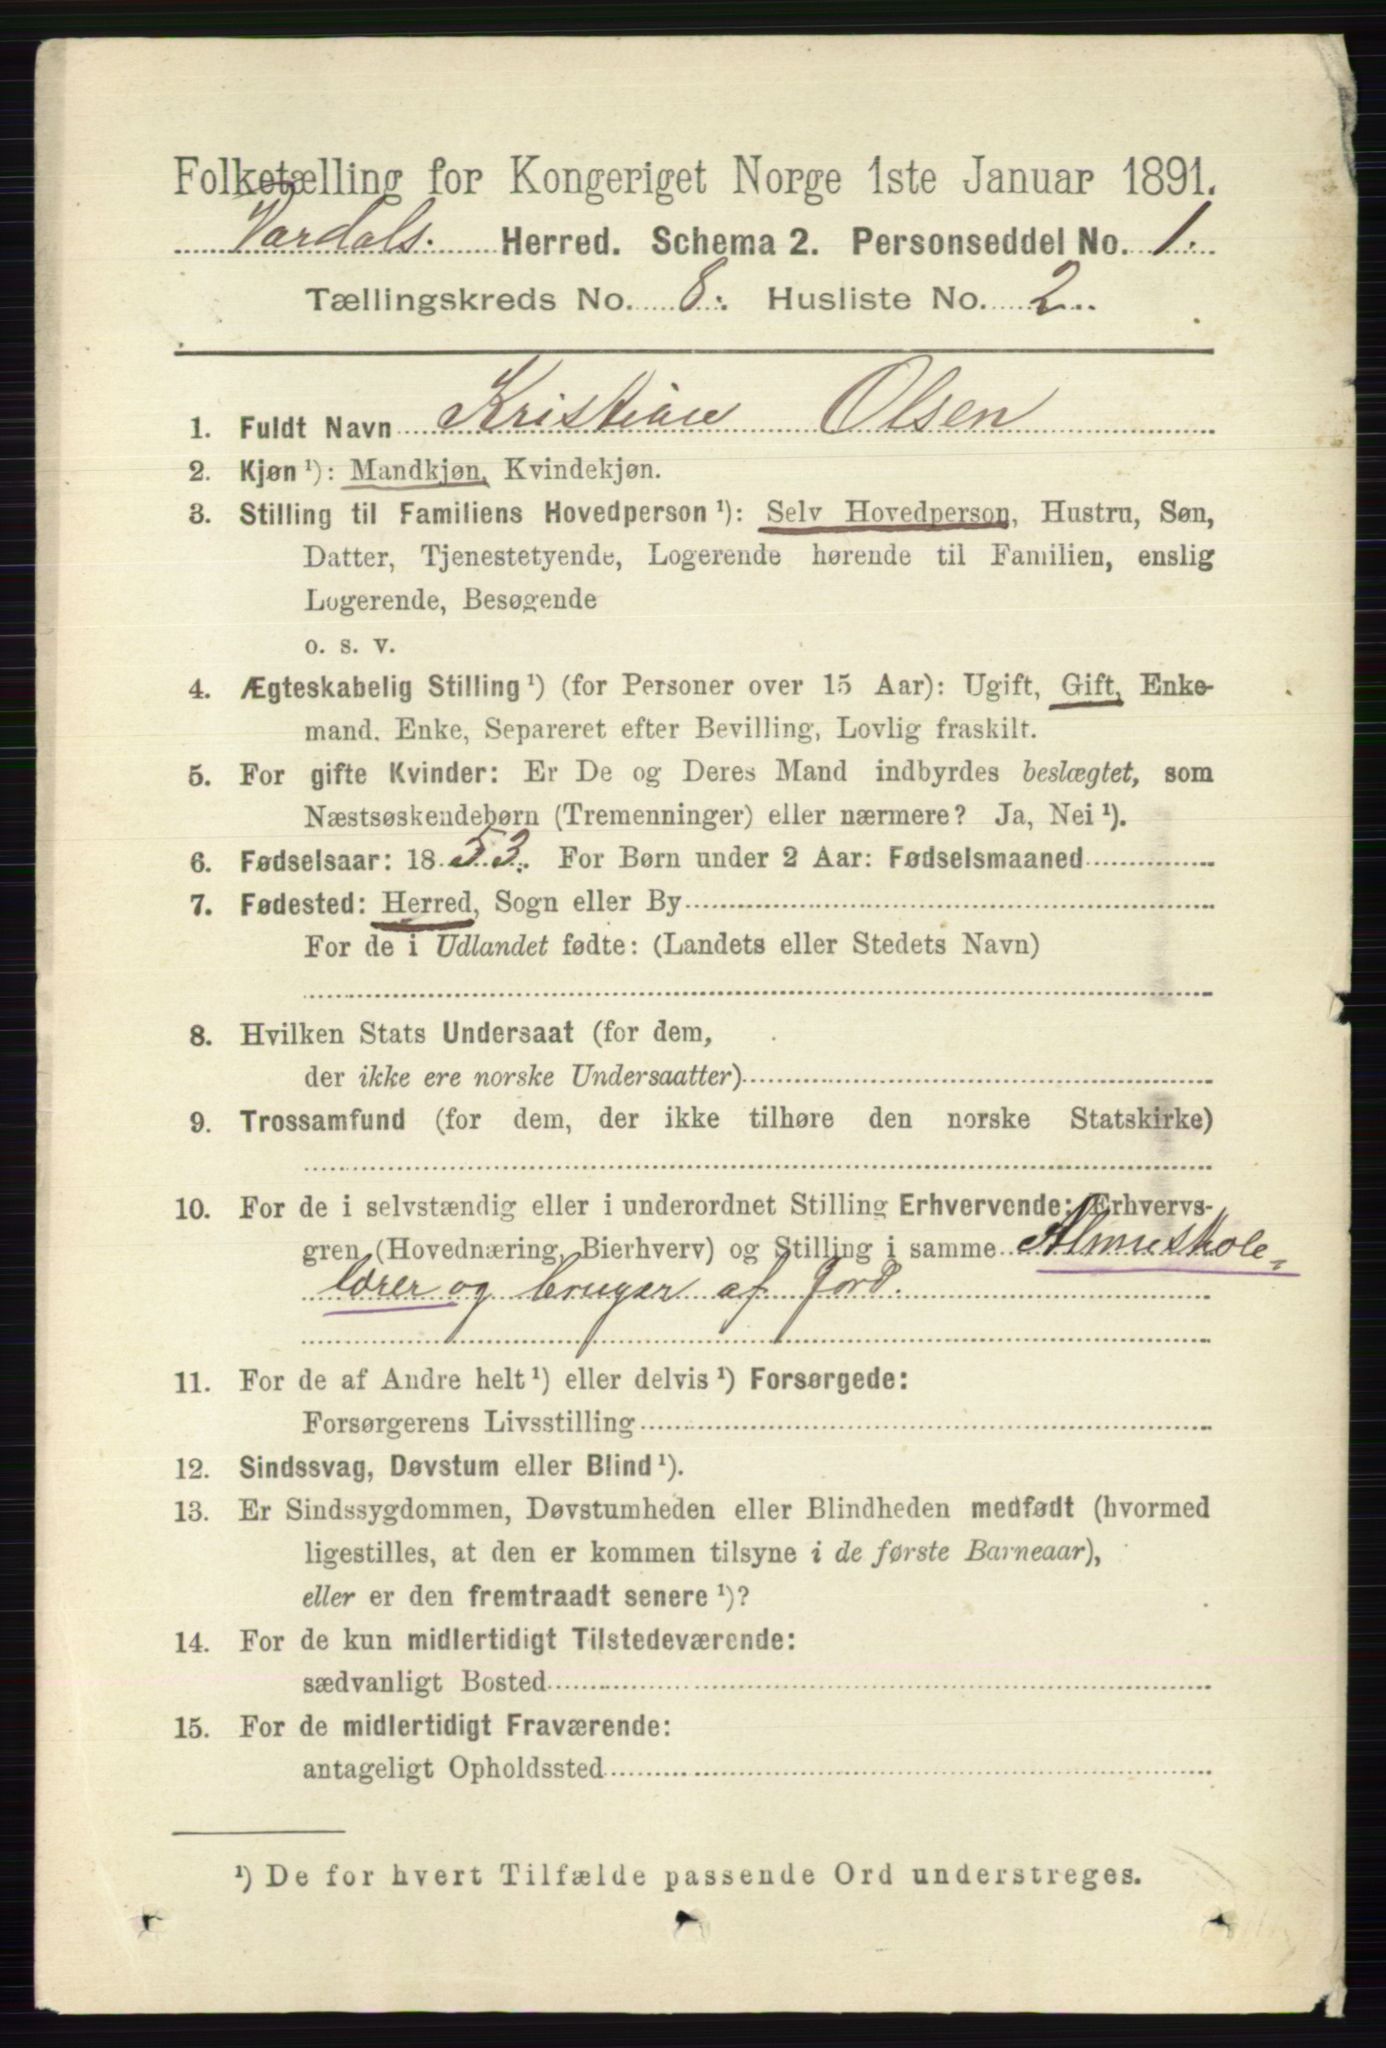 Folketælling for Kongeriget Norge 1ste Januar 1891.
Vardals. Herred. Schema 2. Personseddel No. 1.
Tællingskreds No. 8. Husliste No. 2.
1. Fuldt Navn Kristian Olsen
2. Kjøn ¹): Mandkjøn, Kvindekjøn.
3. Stilling til Familiens Hovedperson ¹): Selv Hovedperson, Hustru, Søn,
Datter, Tjenestetyende, Logerende hørende til Familien, enslig
Logerende, Besøgende
o. s. v.
4. Ægteskabelig Stilling ¹) (for Personer over 15 Aar): Ugift, Gift, Enke-
mand. Enke, Separeret efter Bevilling, Lovlig fraskilt.
5. For gifte Kvinder: Er De og Deres Mand indbyrdes beslægtet, som
Næstsøskendebørn (Tremenninger) eller nærmere? Ja, Nei ¹).
6. Fødselsaar: 1853. For Børn under 2 Aar: Fødselsmaaned
7. Fødested: Herred, Sogn eller By
For de i Udlandet fødte: (Landets eller Stedets Navn)
8. Hvilken Stats Undersaat (for dem,
der ikke ere norske Undersaatter)
9. Trossamfund (for dem, der ikke tilhøre den norske Statskirke)
10. For de i selvstændig eller i underordnet Stilling Erhvervende: Erhvervs-
gren (Hovednæring, Bierhverv) og Stilling i samme Almueskole-
lærer og bruger af Jord.
11. For de af Andre helt ¹) eller delvis ¹) Forsørgede:
Forsørgerens Livsstilling
12. Sindssvag, Døvstum eller Blind ¹).
13. Er Sindssygdommen, Døvstumheden eller Blindheden medfødt (hvormed
ligestilles, at den er kommen tilsyne i de første Barneaar),
eller er den fremtraadt senere ¹)?
14. For de kun midlertidigt Tilstedeværende:
sædvanligt Bosted
15. For de midlertidigt Fraværende:
antageligt Opholdssted
¹) De for hvert Tilfælde passende Ord understreges.